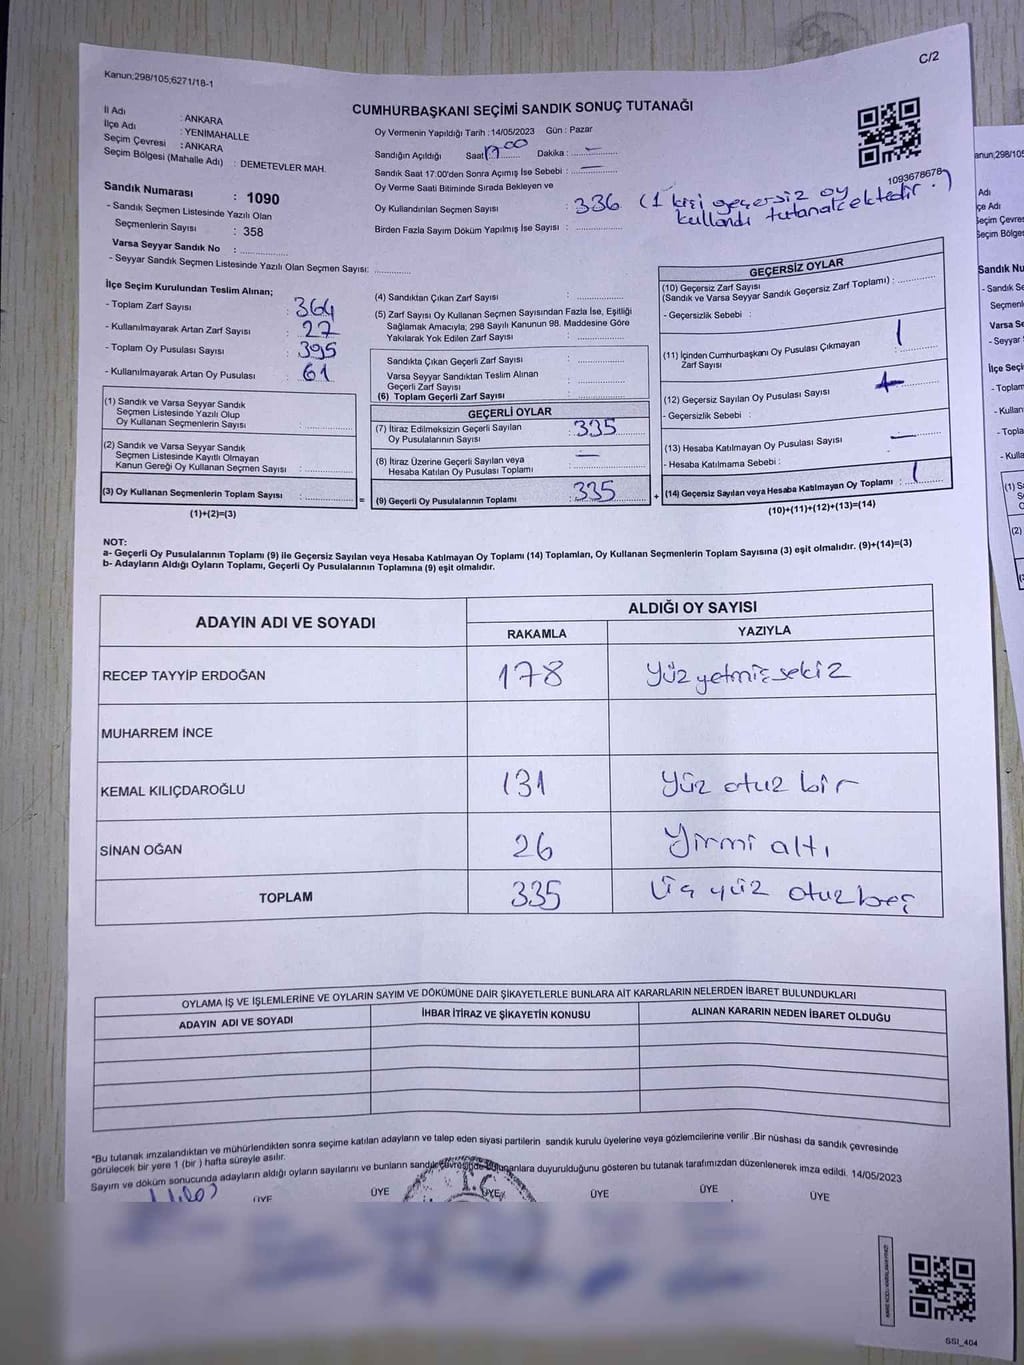 C/2
Kanun;298/105;6271/18-1
CUMHURBAŞKANI SEÇİMİ SANDIK SONUÇ TUTANAĞI
İl Adı : ANKARA
İlçe Adı : YENİMAHALLE
Seçim Çevresi : ANKARA
Seçim Bölgesi (Mahalle Adı) : DEMETEVLER MAH.
Sandık Numarası : 1090
- Sandık Seçmen Listesinde Yazılı Olan
Seçmenlerin Sayısı : 358
Varsa Seyyar Sandık No :
- Seyyar Sandık Seçmen Listesinde Yazılı Olan Seçmen Sayısı:
Oy Vermenin Yapıldığı Tarih : 14/05/2023 Gün : Pazar
Sandığın Açıldığı Saat 17.00 Dakika : —
Sandık Saat 17:00'den Sonra Açımış İse Sebebi : —
Oy Verme Saati Bitiminde Sırada Bekleyen ve
Oy Kullandırılan Seçmen Sayısı : 336 (1 kişi geçersiz oy
kullandı tutanaktektedir.)
Birden Fazla Sayım Döküm Yapılmış İse Sayısı :
1093678678
İlçe Seçim Kurulundan Teslim Alınan;
- Toplam Zarf Sayısı : 364
- Kullanılmayarak Artan Zarf Sayısı : 27
- Toplam Oy Pusulası Sayısı : 395
- Kullanılmayarak Artan Oy Pusulası : 61
(1) Sandık ve Varsa Seyyar Sandık
Seçmen Listesinde Yazılı Olup
Oy Kullanan Seçmenlerin Sayısı :
(2) Sandık ve Varsa Seyyar Sandık
Seçmen Listesinde Kayıtlı Olmayan
Kanun Gereği Oy Kullanan Seçmen Sayısı :
(3) Oy Kullanan Seçmenlerin Toplam Sayısı :
(1)+(2)=(3)
(4) Sandıktan Çıkan Zarf Sayısı :
(5) Zarf Sayısı Oy Kullanan Seçmen Sayısından Fazla İse, Eşitliği
Sağlamak Amacıyla, 298 Sayılı Kanunun 98. Maddesine Göre
Yakılarak Yok Edilen Zarf Sayısı :
Sandıkta Çıkan Geçerli Zarf Sayısı :
Varsa Seyyar Sandıktan Teslim Alınan
Geçerli Zarf Sayısı :
(6) Toplam Geçerli Zarf Sayısı :
GEÇERLİ OYLAR
(7) İtiraz Edilmeksizin Geçerli Sayılan
Oy Pusulalarının Sayısı : 335
(8) İtiraz Üzerine Geçerli Sayılan veya
Hesaba Katılan Oy Pusulası Toplamı : —
= (9) Geçerli Oy Pusulalarının Toplamı : 335 +
GEÇERSİZ OYLAR
(10) Geçersiz Zarf Sayısı
(Sandık ve Varsa Seyyar Sandık Geçersiz Zarf Toplamı) :
- Geçersizlik Sebebi :
(11) İçinden Cumhurbaşkanı Oy Pusulası Çıkmayan
Zarf Sayısı : 1
(12) Geçersiz Sayılan Oy Pusulası Sayısı :
- Geçersizlik Sebebi :
(13) Hesaba Katılmayan Oy Pusulası Sayısı : —
- Hesaba Katılmama Sebebi :
(14) Geçersiz Sayılan veya Hesaba Katılmayan Oy Toplamı : 1
(10)+(11)+(12)+(13)=(14)
NOT:
a- Geçerli Oy Pusulalarının Toplamı (9) ile Geçersiz Sayılan veya Hesaba Katılmayan Oy Toplamı (14) Toplamları, Oy Kullanan Seçmenlerin Toplam Sayısına (3) eşit olmalıdır. (9)+(14)=(3)
b- Adayların Aldığı Oyların Toplamı, Geçerli Oy Pusulalarının Toplamına (9) eşit olmalıdır.
ADAYIN ADI VE SOYADI ALDIĞI OY SAYISI
RAKAMLA YAZIYLA
RECEP TAYYİP ERDOĞAN 178 Yüz yetmiş sekiz
MUHARREM İNCE
KEMAL KILIÇDAROĞLU 131 Yüz otuz bir
SİNAN OĞAN 26 Yirmi altı
TOPLAM 335 Üç yüz otuz beş
OYLAMA İŞ VE İŞLEMLERİNE VE OYLARIN SAYIM VE DÖKÜMÜNE DAİR ŞİKAYETLERLE BUNLARA AİT KARARLARIN NELERDEN İBARET BULUNDUKLARI
ADAYIN ADI VE SOYADI İHBAR İTİRAZ VE ŞİKAYETİN KONUSU ALINAN KARARIN NEDEN İBARET OLDUĞU
*Bu tutanak imzalandıktan ve mühürlendikten sonra seçime katılan adayların ve talep eden siyasi partilerin sandık kurulu üyelerine veya gözlemcilerine verilir .Bir nüshası da sandık çevresinde
görülecek bir yere 1 (bir ) hafta süreyle asılır.
Sayım ve döküm sonucunda adayların aldığı oyların sayılarını ve bunların sandık çevresinde bulunanlara duyurulduğunu gösteren bu tutanak tarafımızdan düzenlenerek imza edildi. 14/05/2023
ÜYE ÜYE ÜYE ÜYE ÜYE ÜYE
T.C.
SSI_404